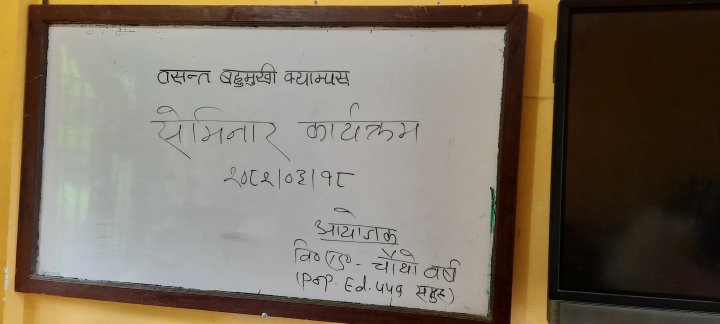 वसन्त बहुमुखी क्याम्पस
सेमिनार कार्यक्रम
२०८२/०३/१८
आयोजक
वि०एड०- चौथो वर्ष
(Pop. Ed. ५५१ समुह)